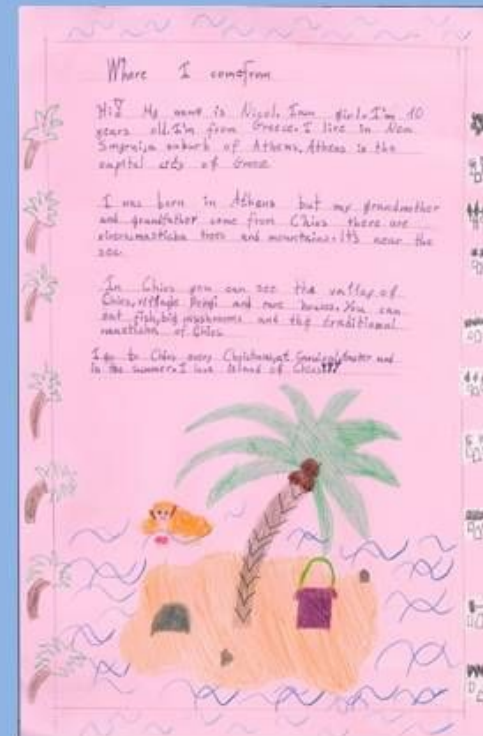 Where I comefrom
Hi! My name is Nicol. Iam girl. I'm 10
years old. I'm from Greece. I live in Nea
Smyrni, a suburb of Athens. Athens is the
capital city of Greece
I was born in Athens but my grandmother
and grandfather come from Chios there are
rivers, masticha trees and mountains. It's near the
sea.
In Chios you can see the valley of
Chios, village Pyrgi and houses. You can
eat fish, big mushrooms and the traditional
masticha of Chios
I go to Chios every Christmas, at and
in the summer. I love island of Chios!!!